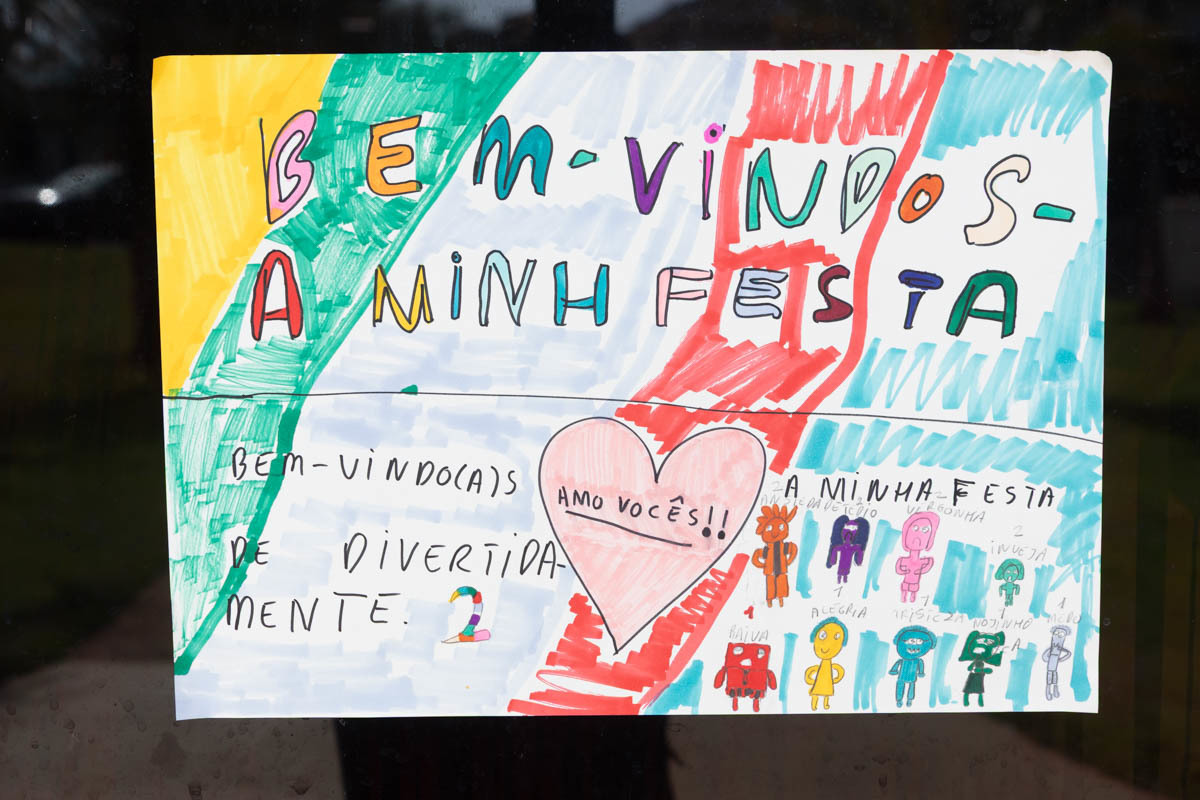 BEM-VINDOS-
A MINH FESTA
BEM-VINDO(A)S
A MINHA FESTA
DE DIVERTIDA-
MENTE. 2
AMO VOCÊS!!
2 2 2
ANSIEDADE TÉDIO VERGONHA
2
INVEJA
1 1 1 1 1
RAIVA ALEGRIA TRISTEZA NOJINHO MEDO